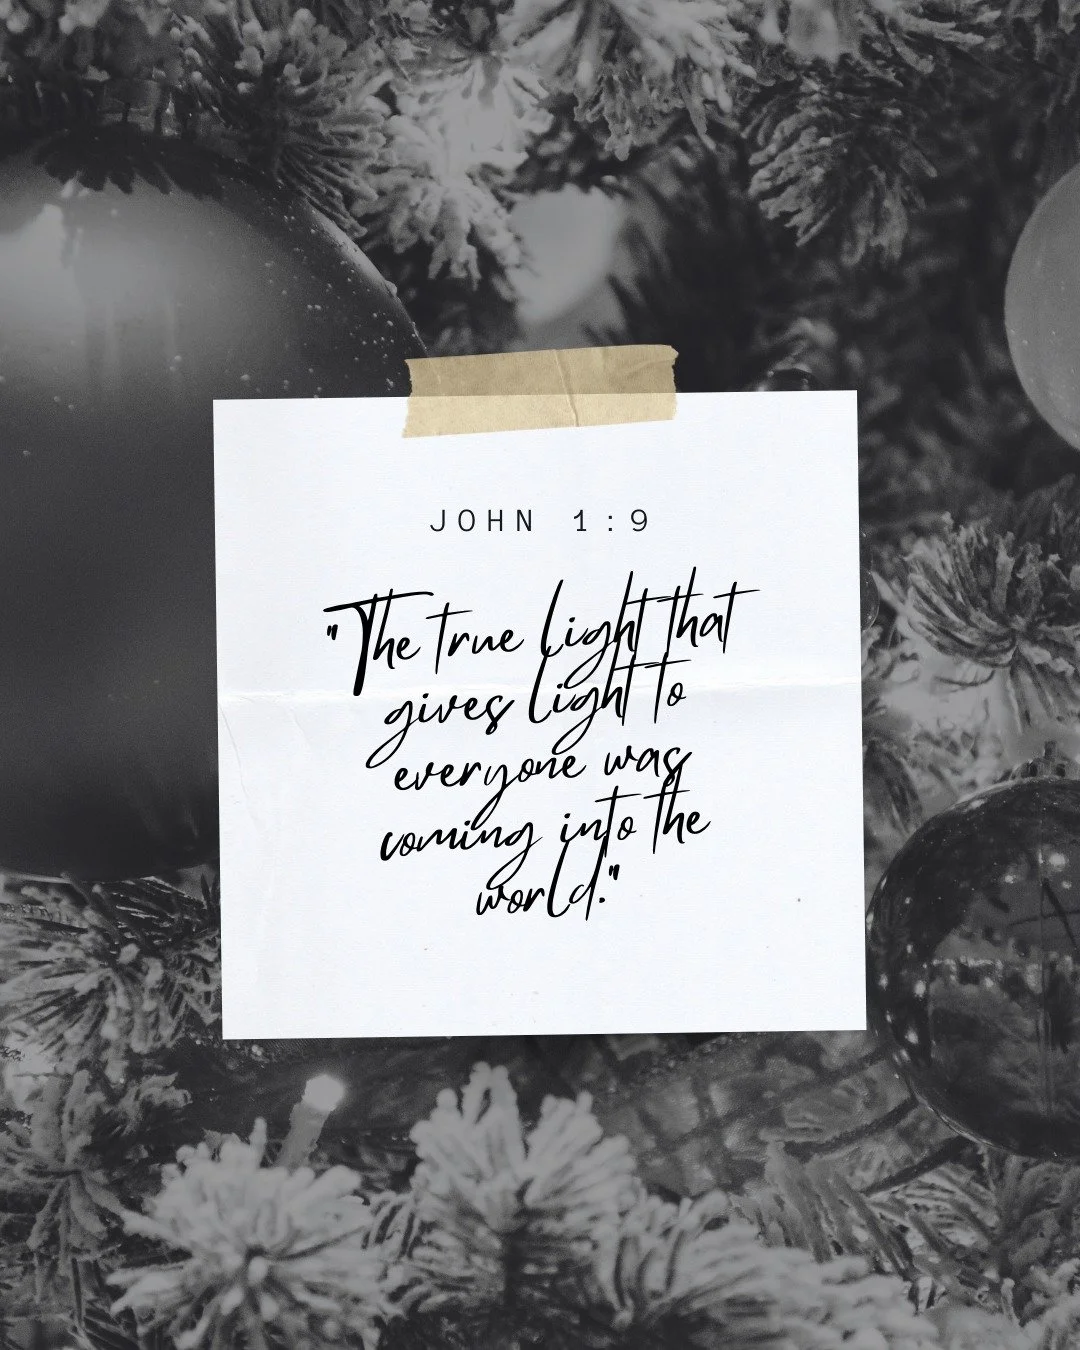 JOHN 1:9
"The true light that
gives light to
everyone was
coming into the
world."